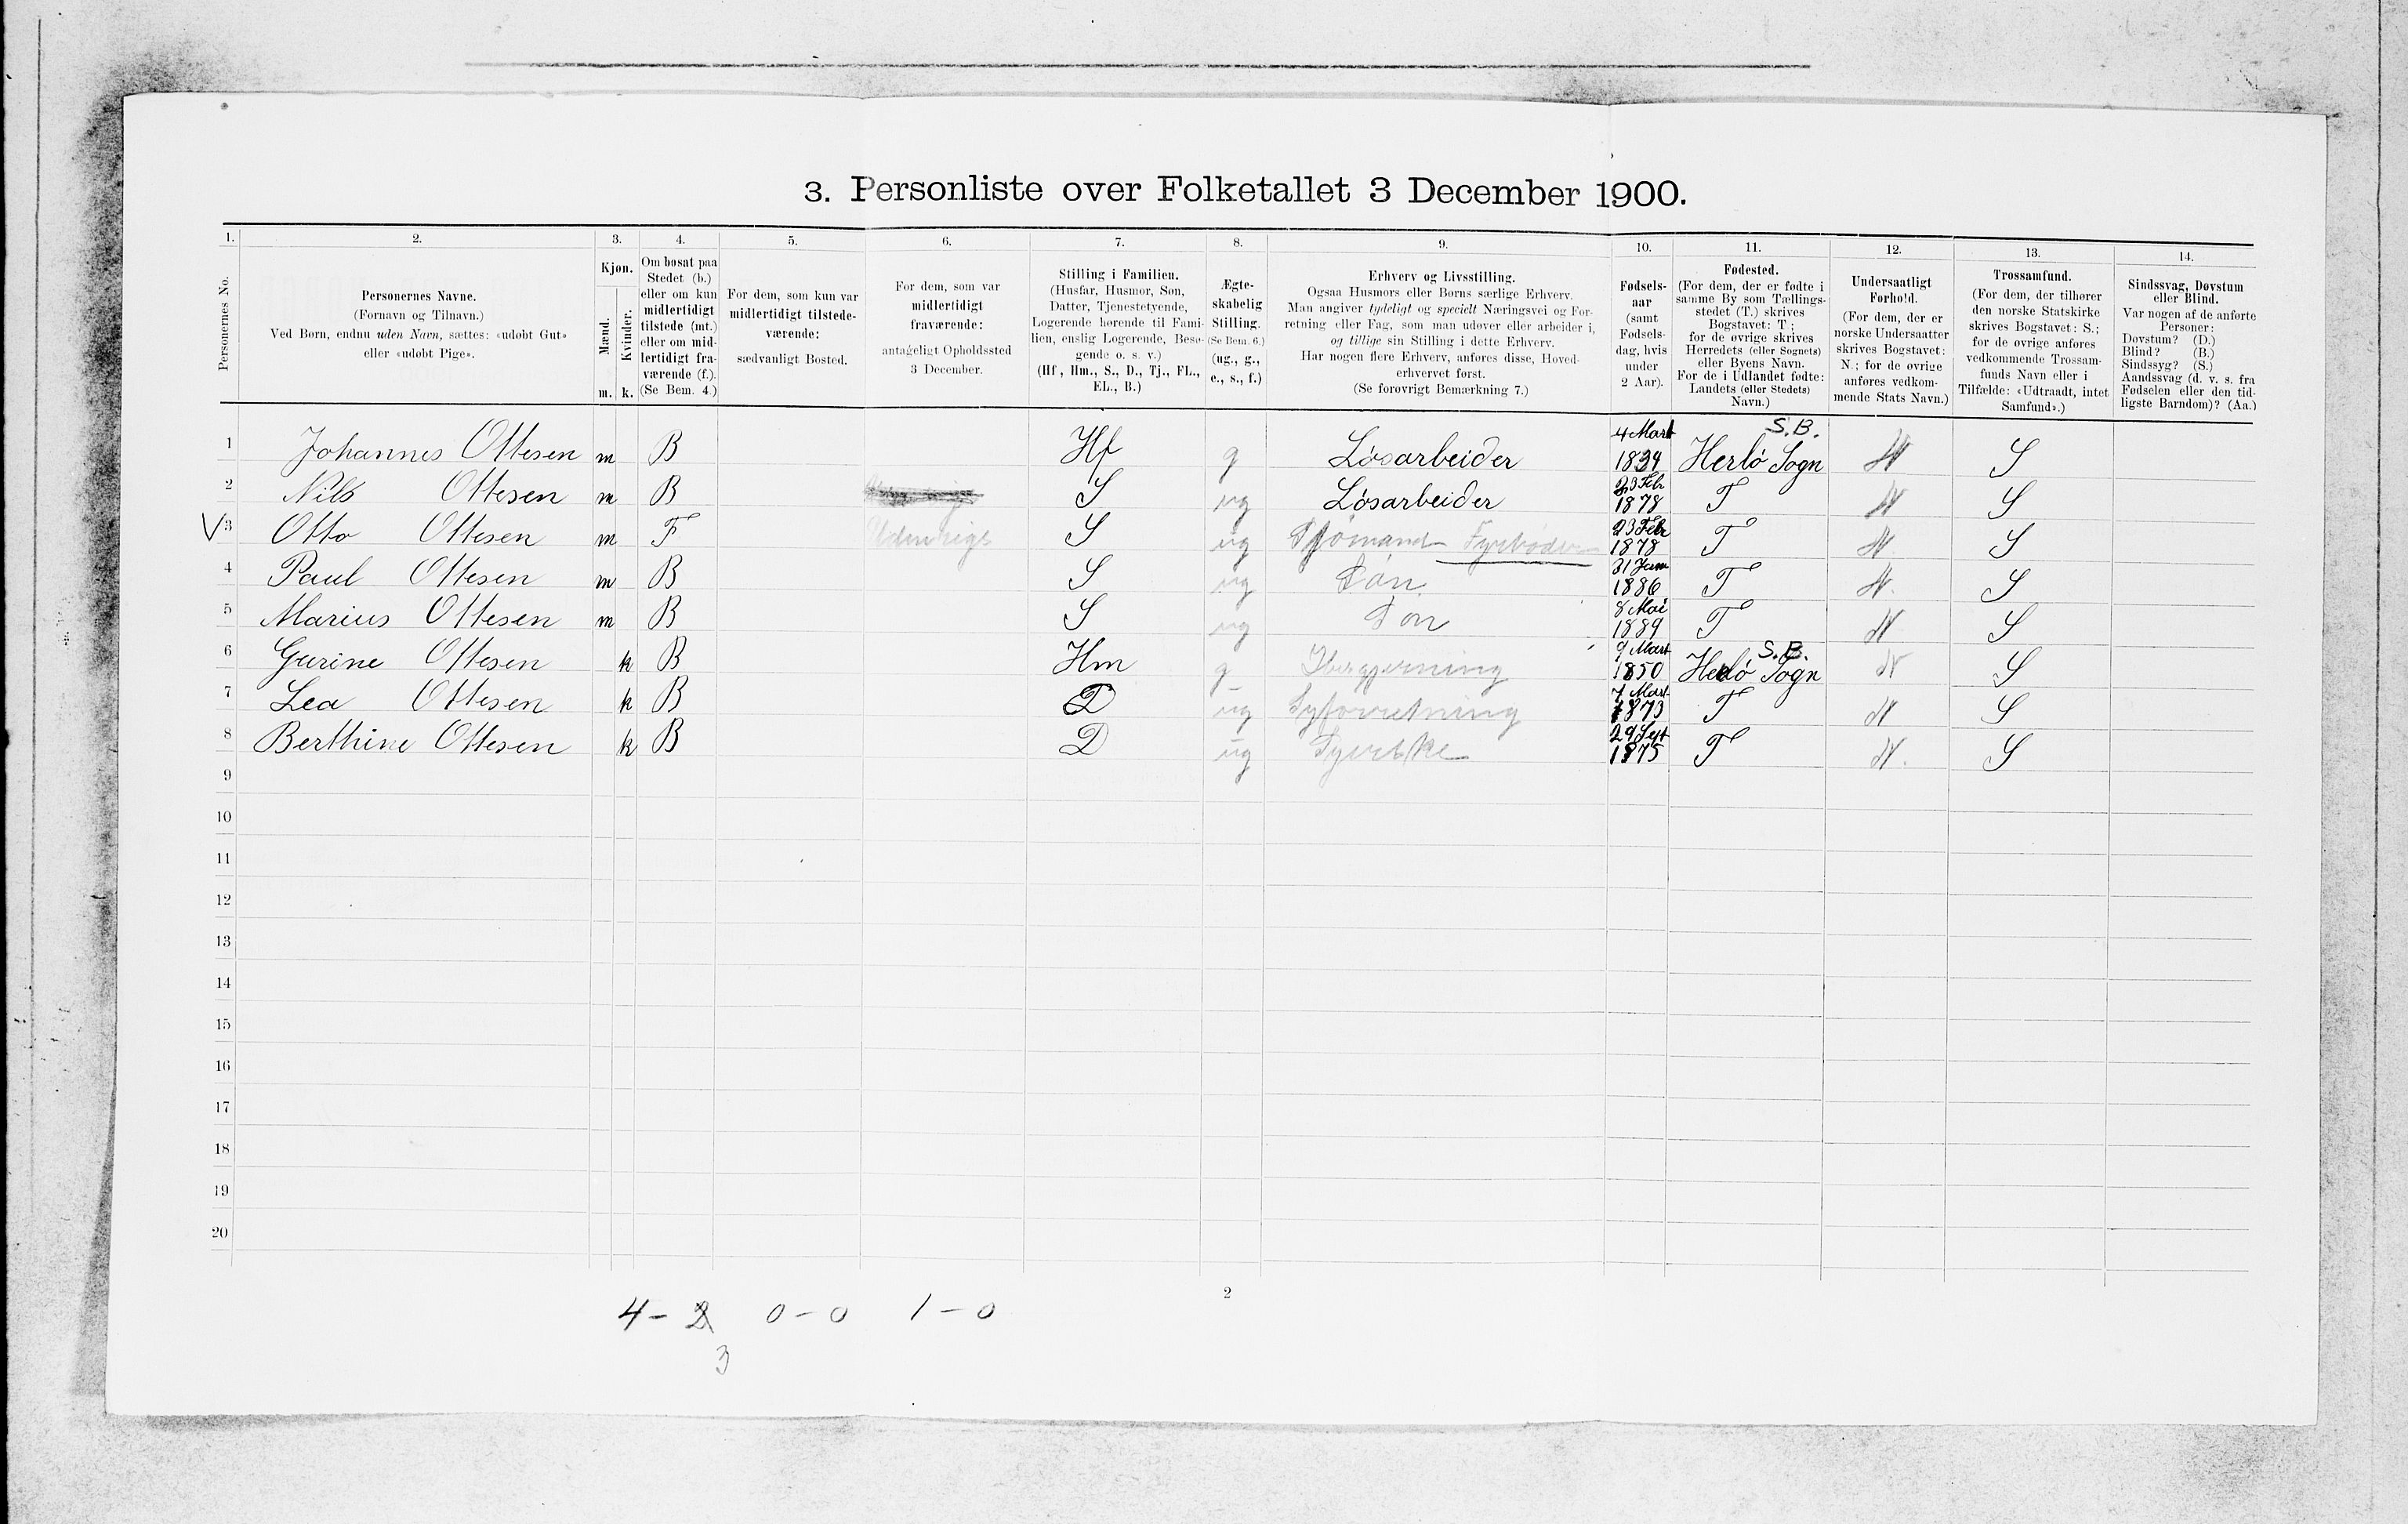 3. Personliste over Folketallet 3 December 1900.
1. 2. 3. 4. 5. 6. 7. 8. 9. 10. 11. 12. 13. 14.
Personernes No.
Personernes Navne.
(Fornavn og Tilnavn.)
Ved Børn, endnu uden Navn, sættes: «udøbt Gut»
eller «udøbt Pige».
Kjøn.
Mænd.
Kvinder.
m. k.
Om bosat paa
Stedet (b.)
eller om kun
midlertidigt
tilstede (mt.)
eller om mid-
lertidigt fra-
værende (f.).
(Se Bem. 4.)
For dem, som kun var
midlertidigt tilstede-
værende:
sædvanligt Bosted.
For dem, som var
midlertidigt
fraværende:
antageligt Opholdssted
3 December.
Stilling i Familien.
(Husfar, Husmor, Søn,
Datter, Tjenestetyende,
Logerende hørende til Fami-
lien, enslig Logerende, Besø-
gende o. s. v.)
(Hf, Hm., S., D., Tj., FL.,
EL., B.)
Ægte-
skabelig
Stilling.
(Se Bem. 6.)
(ug., g.,
e., s., f.)
Erhverv og Livsstilling.
Ogsaa Husmors eller Børns særlige Erhverv.
Man angiver tydeligt og specielt Næringsvei og For-
retning eller Fag, som man udøver eller arbeider i,
og tillige sin Stilling i dette Erhverv.
Har nogen flere Erhverv, anføres disse, Hoved-
erhvervet først.
(Se forøvrigt Bemærkning 7.)
Fødsels-
aar
(samt
Fødsels-
dag, hvis
under
2 Aar).
Fødested.
(For dem, der er fødte i
samme By som Tællings-
stedet (T.) skrives
Bogstavet: T ;
for de øvrige skrives
Herredets (eller Sognets)
eller Byens Navn.
For de i Udlandet fødte:
Landets (eller Stedets)
Navn.)
Undersaatligt
Forhold.
(For dem, der er
norske Undersaatter
skrives Bogstavet:
N.; for de øvrige
anføres vedkom-
mende Stats Navn.)
Trossamfund.
(For dem, der tilhører
den norske Statskirke
skrives Bogstavet: S.;
for de øvrige anføres
vedkommende Trossam-
funds Navn eller i
Tilfælde: «Udtraadt, intet
Samfund».)
Sindssvag, Døvstum
eller Blind.
Var nogen af de anførte
Personer:
Døvstum? (D.)
Blind? (B.)
Sindssyg? (S.)
Aandssvag (d. v. s. fra
Fødselen eller den tid-
ligste Barndom)? (Aa.)
4 Mart S.B.
1 Johannes Ottesen m B Hf g Løsarbeider 1834 Herlø Sogn N S
23 Febr
2 Nils Ottesen m B S ug Løsarbeider 1878 T N S
23 Febr
V 3 Otto Ottesen m F Udenrigs S ug Sjømand Fyrbøder 1878 T N S
31 Janu
4 Paul Ottesen m B S ug Søn 1886 T N. S
8 Mai
5 Marius Ottesen m B S ug Søn 1889 T N S
9 Mart S.B.
6 Gurine Ottesen k B Hm g 1850 Herlø Sogn N S
7 Mart
7 Lea Ottesen k B D ug Syforretning 1873 T N S
29 Sept
8 Berthine Ottesen k B D ug Syerske 1875 T N. S
9
10
11
12
13
14
15
16
17
18
19
20
2
4 - 2 0 - 0 1 - 0
3